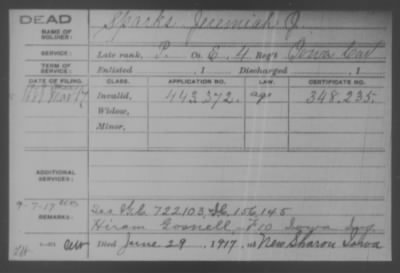 DEAD
NAME OF SOLDIER: Sparks, Jeremiah J.
SERVICE: Late rank, P. Co. E, 4 Reg't Iowa Cav
TERM OF SERVICE: Enlisted 1 Discharged 1
DATE OF FILING. CLASS. APPLICATION NO. LAW. CERTIFICATE NO.
Invalid, 443.372. 348.235.
Widow,
Minor,
ADDITIONAL SERVICES:
REMARKS: 722103, 156,145
Hiram Gosnell, F 10 Iowa Inf.
Died June 29, 1917, at New Sharon Iowa